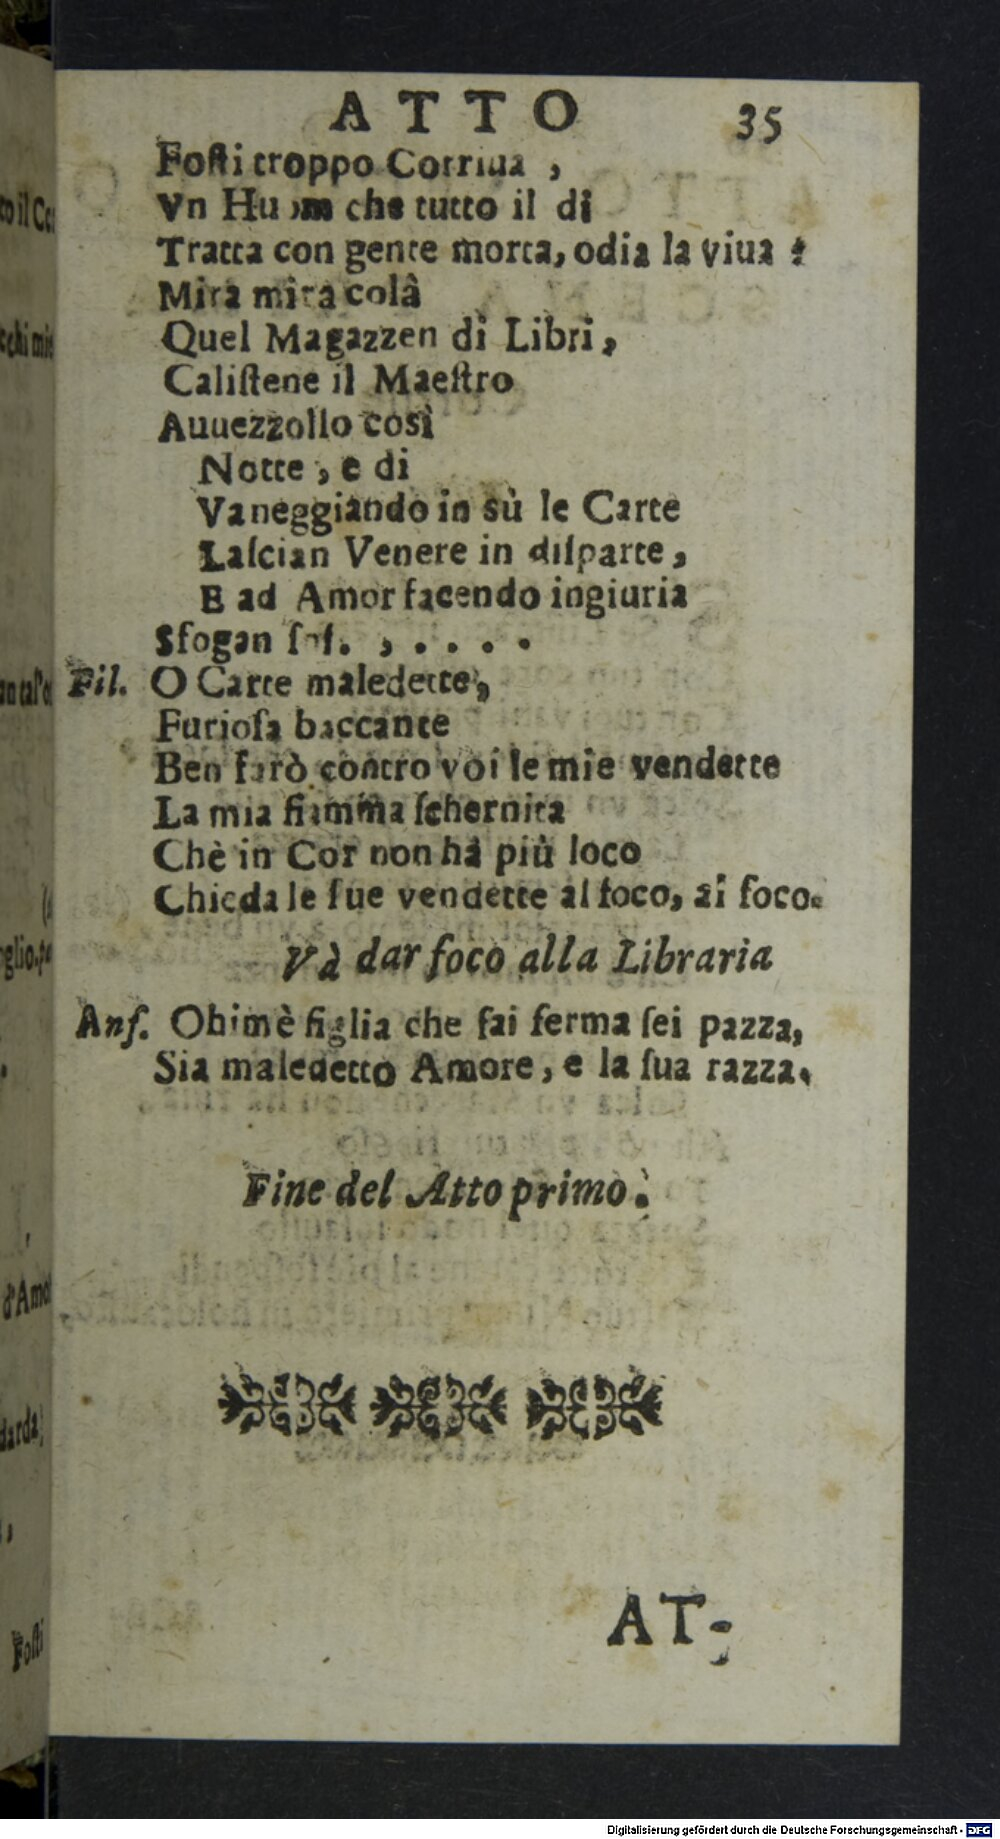 ATTO 35
Foſti troppo Corriua ,
Vn Huom che tutto il di
Tratta con gente morta, odia la viua :
Mira mira colâ
Quel Magazzen di Libri,
Caliſtene il Maeſtro
Auuezzollo così
Notte, e di
Vaneggiando in sù le Carte
Laſcian Venere in diſparte,
E ad Amor facendo ingiuria
Sfogan . , . . . . .
Fil. O Carte maledette,
Furioſa baccante
Ben farò contro voi le mie vendette
La mia fiamma ſchernita
Chè in Cor non há più loco
Chieda le ſue vendette al foco, al foco.
Và dar foco alla Libraria
Anf. Ohimè figlia che fai ferma ſei pazza,
Sia maledetto Amore, e la ſua razza.
Fine del Atto primo.
AT-
to il
cchi mie
an tal'
oglio.
d'Amo
darda
Foſti
Digitalisierung gefördert durch die Deutsche Forschungsgemeinschaft - DFG